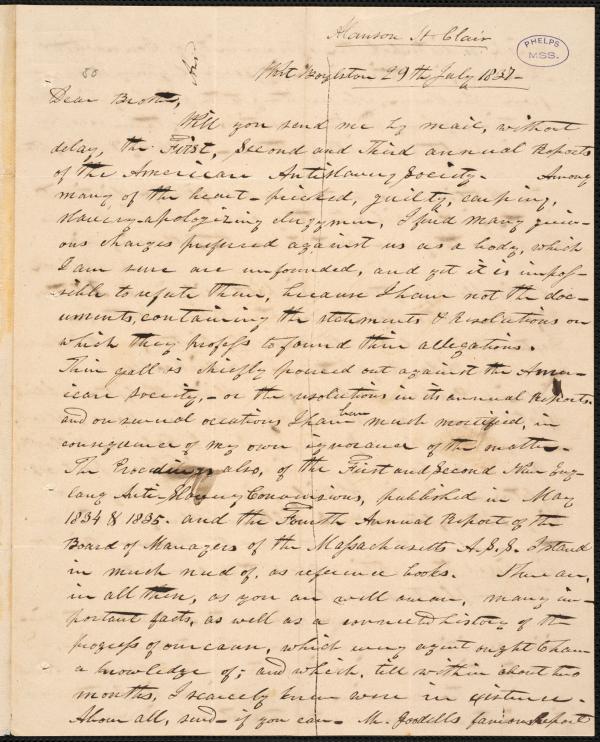 Alanson St Clair
PHELPS
MSS.
50
West Boylston 29th July 1837-
Dear Brother,
Will you send me by mail, without
delay, the First, Second and Third annual Reports
of the American Antislavery Society. Among
many of the heart-pricked, guilty, carping,
slavery-apologizing clergymen, I find many griev-
ous charges preferred against us as a body, which
I am sure are unfounded, and yet it is impos-
sible to refute them, because I have not the doc-
uments, containing the statements & Resolutions on
which they profess to found their allegations.
Their gall is chiefly poured out against the Amer-
ican Society,- or the resolutions in its annual Reports.
and on several occations I have been much mortified, in
consequence of my own ignorance of the matter.
The Proceedings also, of the First and Second New Eng-
land Anti-Slavery Conventions, published in May
1834 & 1835. and the Fourth Annual Report of the
Board of Managers of the Massachusetts A.S.S. I stand
in much need of, as reference books. There are,
in all these, as you are well aware, many im-
portant facts, as well as a connected history of the
progress of our cause, which every agent ought to have
a knowledge of; and which, till within about two
months, I scarcely knew were in existence.
Above all, send- if you can- M. Goodell's famous Report